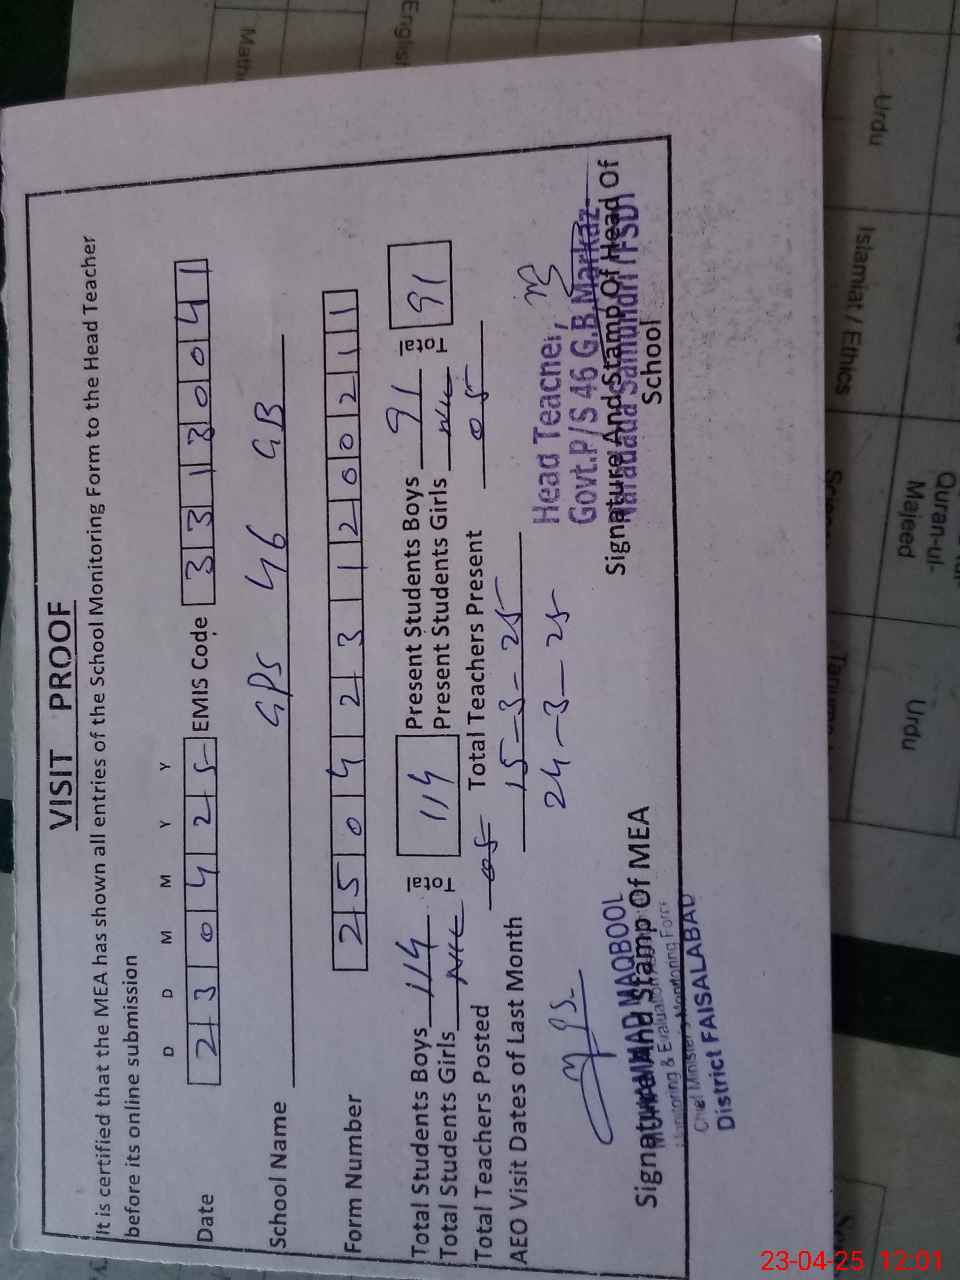 VISIT PROOF
It is certified that the MEA has shown all entries of the School Monitoring Form to the Head Teacher
before its online submission
D D M M Y Y
Date 2 3 0 4 2 5 EMIS Code 3 3 1 3 0 0 4 1
School Name GPS 46 GB
Form Number 2 5 0 4 2 3 1 2 0 0 2 1 1
Total Students Boys 114 Total 114 Present Students Boys 91 Total 91
Total Students Girls Nil Present Students Girls Nil
Total Teachers Posted 05 Total Teachers Present 05
AEO Visit Dates of Last Month 15-3-25
24-3-25
Head Teacher,
Govt.P/S 46 G.B Markaz
Signature And Stamp Of Head Of
School
Signature And Stamp Of MEA
MUHAMMAD MAQBOOL
Monitoring & Evaluation
Chief Minister's Monitoring Force
District FAISALABAD
Math
English
Urdu
Islamiat / Ethics
Quran-ul-
Majeed
Urdu
23-04-25 12:01